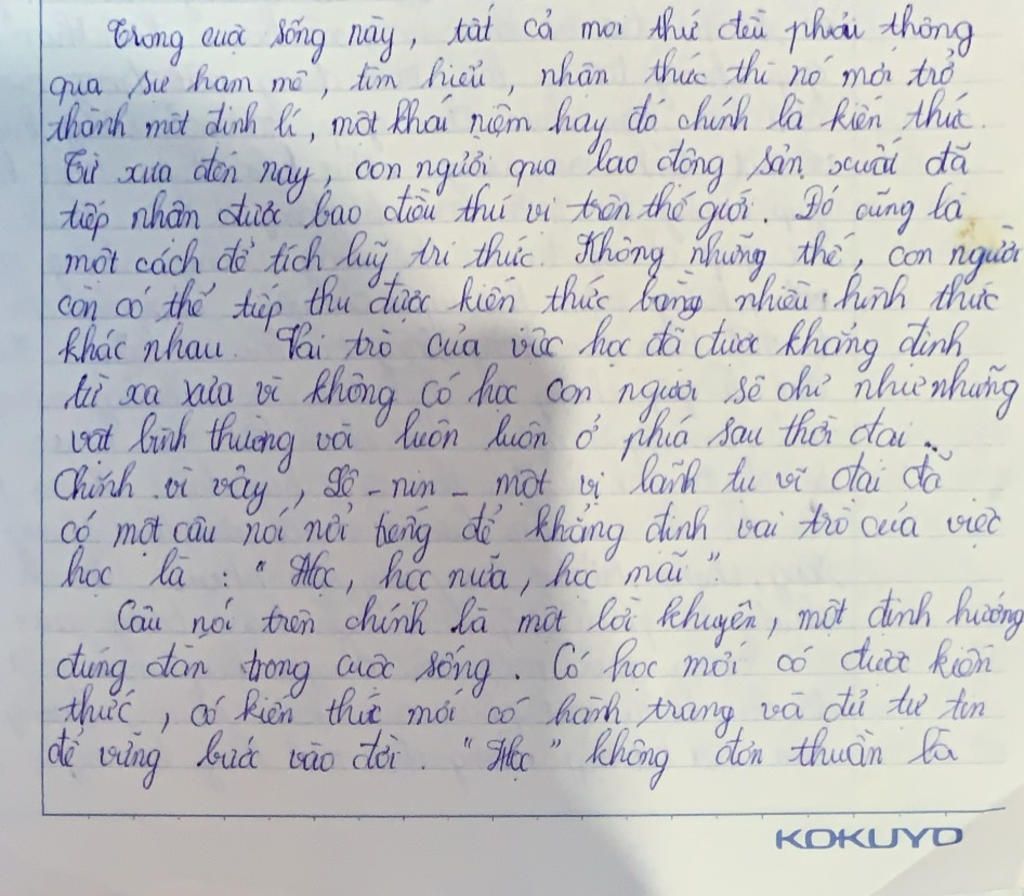 Trong cuộc sống này, tất cả mọi thứ đều phải thông
qua sự ham mê, tìm hiểu, nhận thức thì nó mới trở
thành một định lí, một khái niệm hay đó chính là kiến thức.
Từ xưa đến nay, con người qua lao động sản xuất đã
tiếp nhận được bao điều thú vị trên thế giới. Đó cũng là
một cách để tích luỹ tri thức. Không những thế, con người
còn có thể tiếp thu được kiến thức bằng nhiều hình thức
khác nhau. Vai trò của việc học đã được khẳng định
từ xa xưa vì không có học con người sẽ chỉ như những
vật bình thường và luôn luôn ở phía sau thời đại.
Chính vì vậy, Lê-nin - một vị lãnh tụ vĩ đại đã
có một câu nói nổi tiếng để khẳng định vai trò của việc
học là : "Học, học nữa, học mãi".
Câu nói trên chính là một lời khuyên, một định hướng
đúng đắn trong cuộc sống. Có học mới có được kiến
thức, có kiến thức mới có hành trang và đủ tự tin
để vững bước vào đời. "Học" không đơn thuần là
KOKUYO